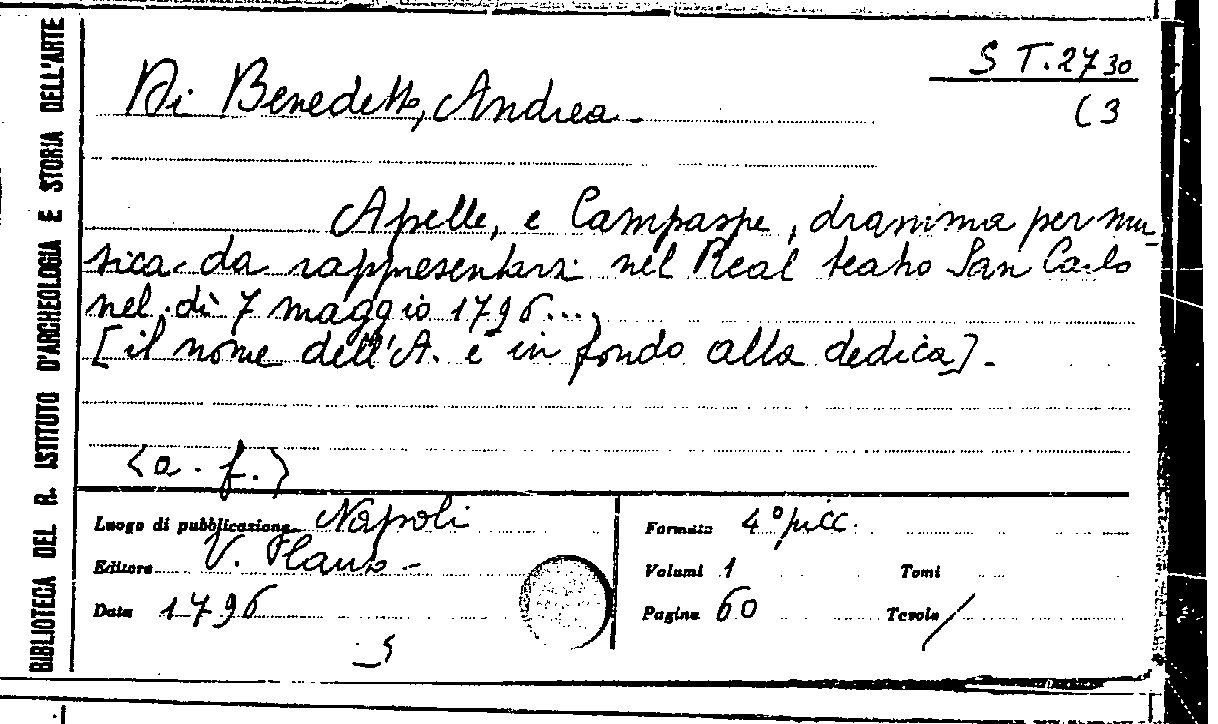 BIBLIOTECA DEL R. ISTITUTO D'ARCHEOLOGIA E STORIA DELL'ARTE
S T. 2730
(3
Di Benedetto, Andrea.
Apelle, e Campaspe, dramma per mu-
sica da rappresentarsi nel Real teatro San Carlo
nel dì 7 maggio 1796....
[il nome dell'A. è in fondo alla dedica].
<a. f.>
Luogo di pubblicazione Napoli
Editore V. Flauto
Data 1796
Formato 4° picc.
Volumi 1 Tomi
Pagine 60 Tavole /